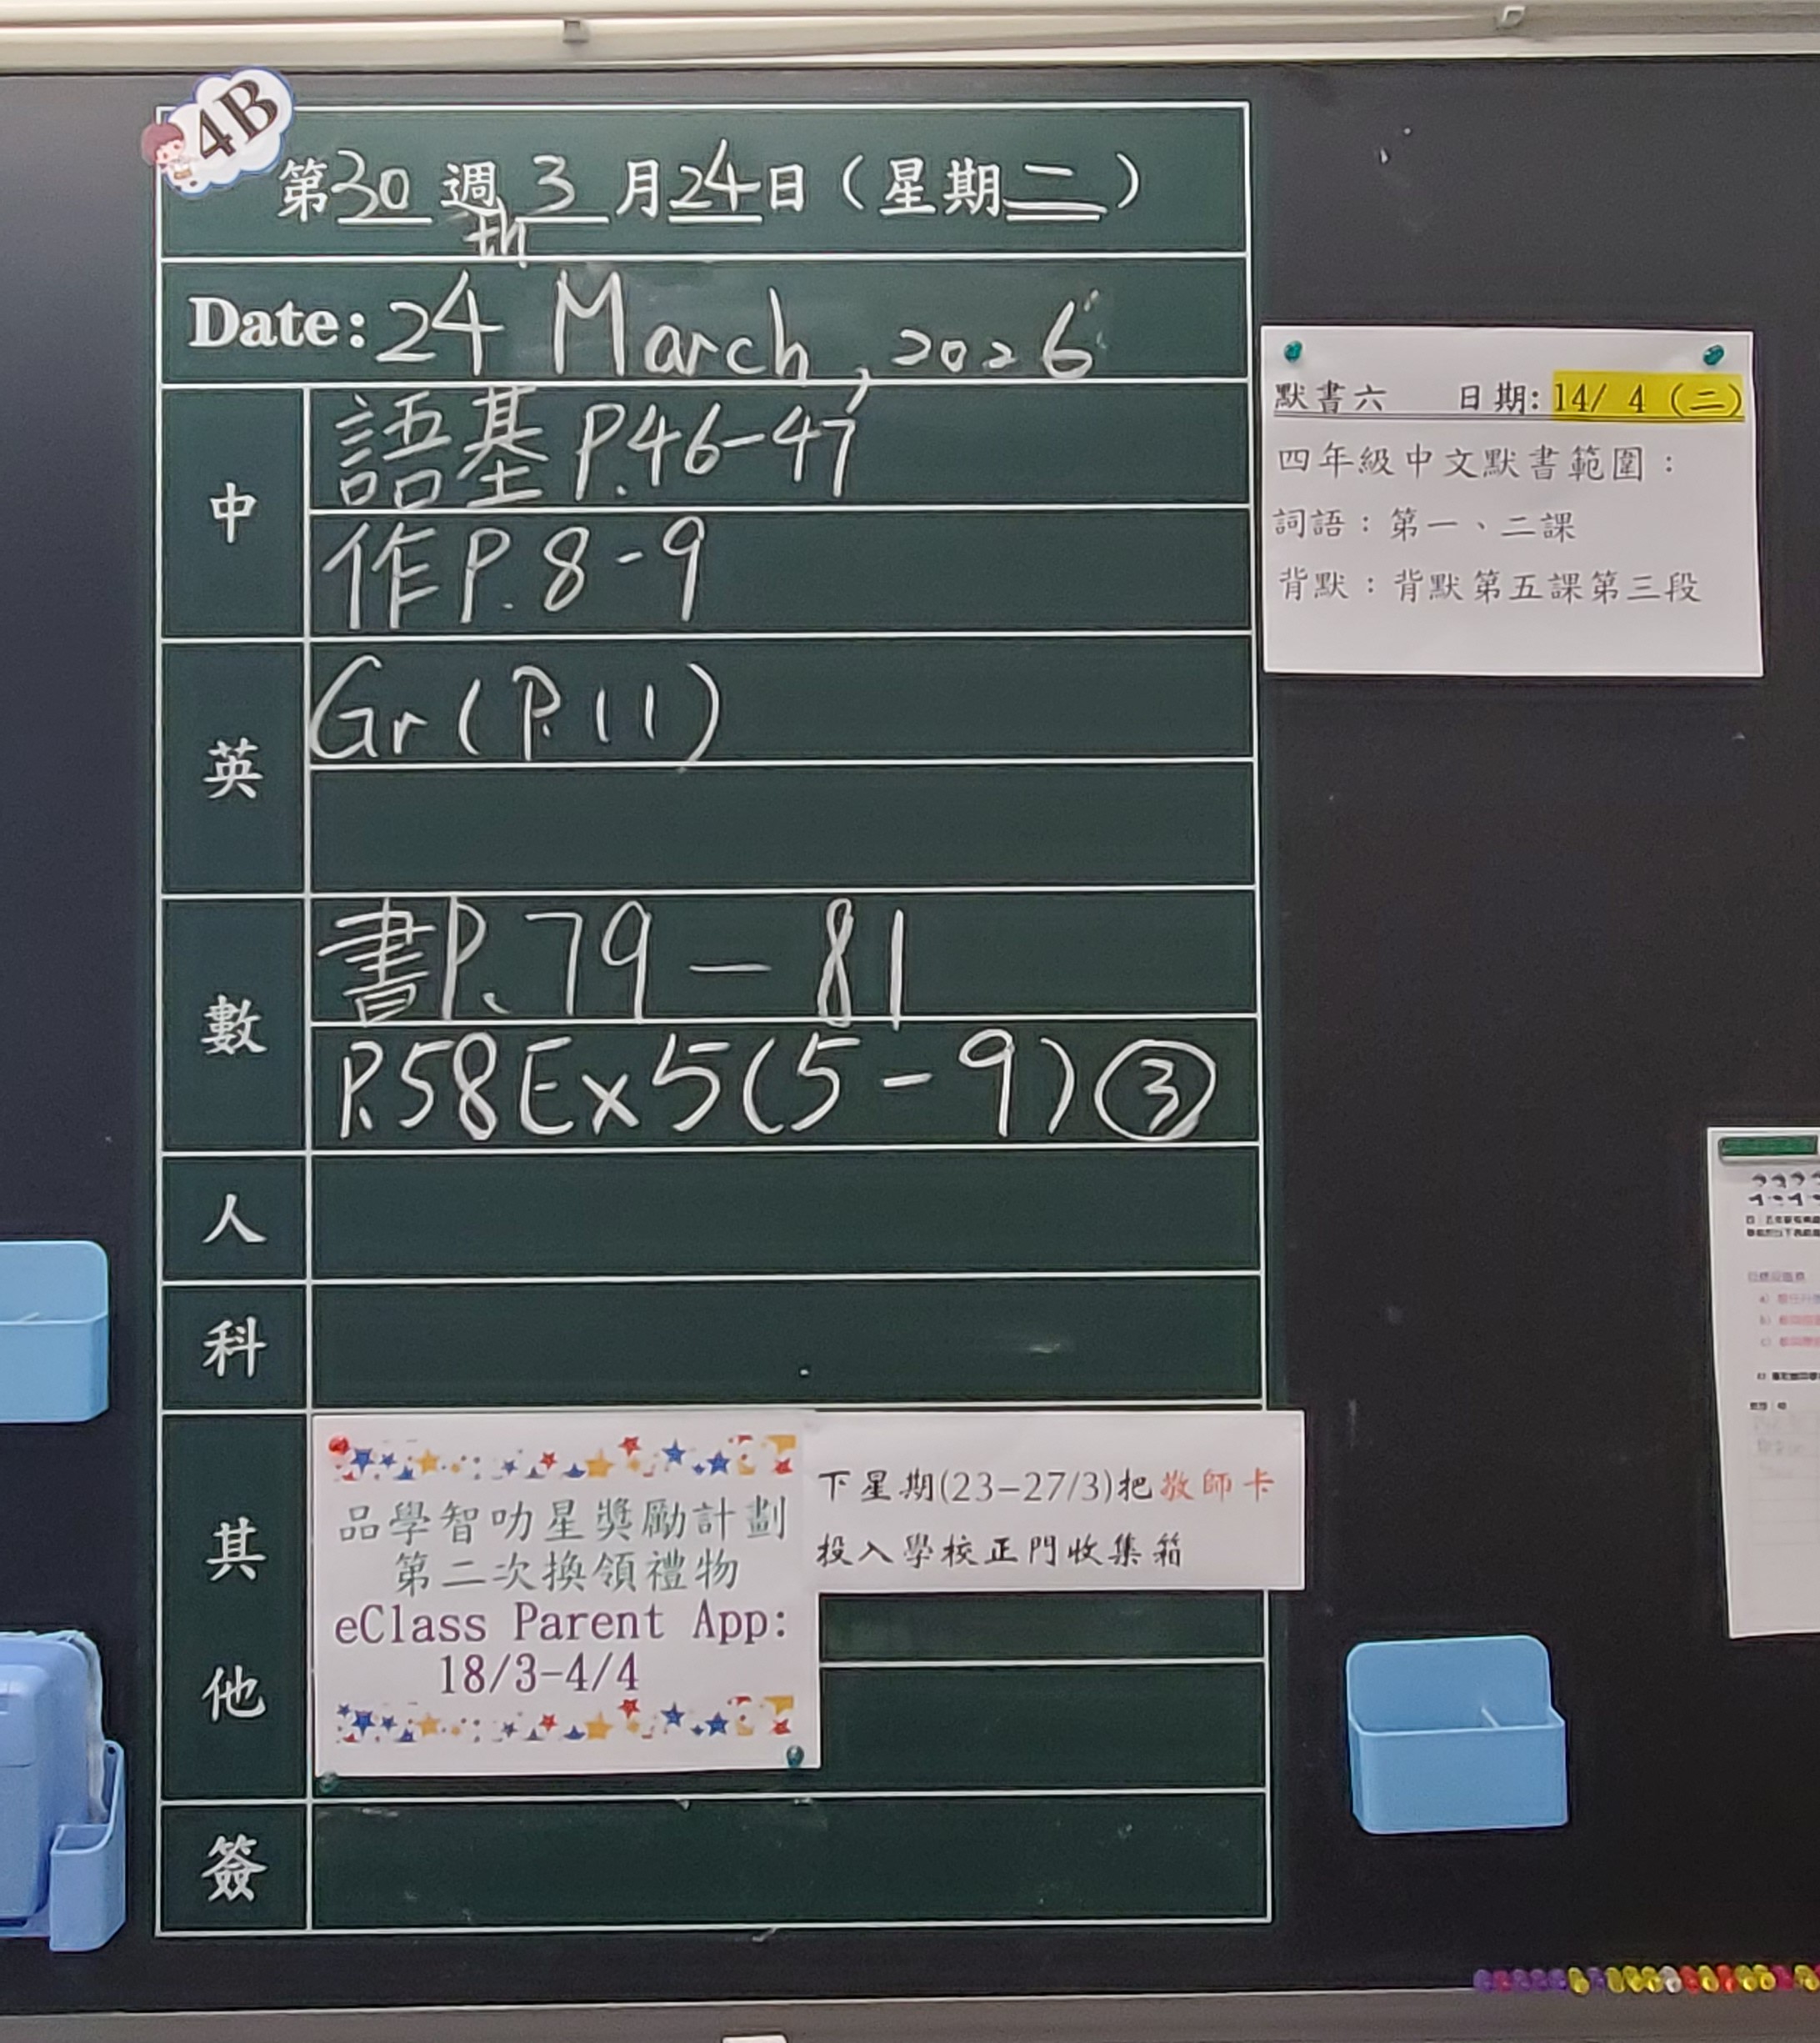 4B
第30週3月24日（星期二）
th
Date: 24 March, 2026
中
語基P.46-47
作P.8-9
英
Gr(P.11)
數
書P.79-81
P.58Ex5(5-9)③
人
科
其他
品學智叻星獎勵計劃
第二次換領禮物
eClass Parent App:
18/3-4/4
下星期(23-27/3)把敬師卡
投入學校正門收集箱
簽
默書六 日期:14/ 4 (二)
四年級中文默書範圍：
詞語：第一、二課
背默：背默第五課第三段